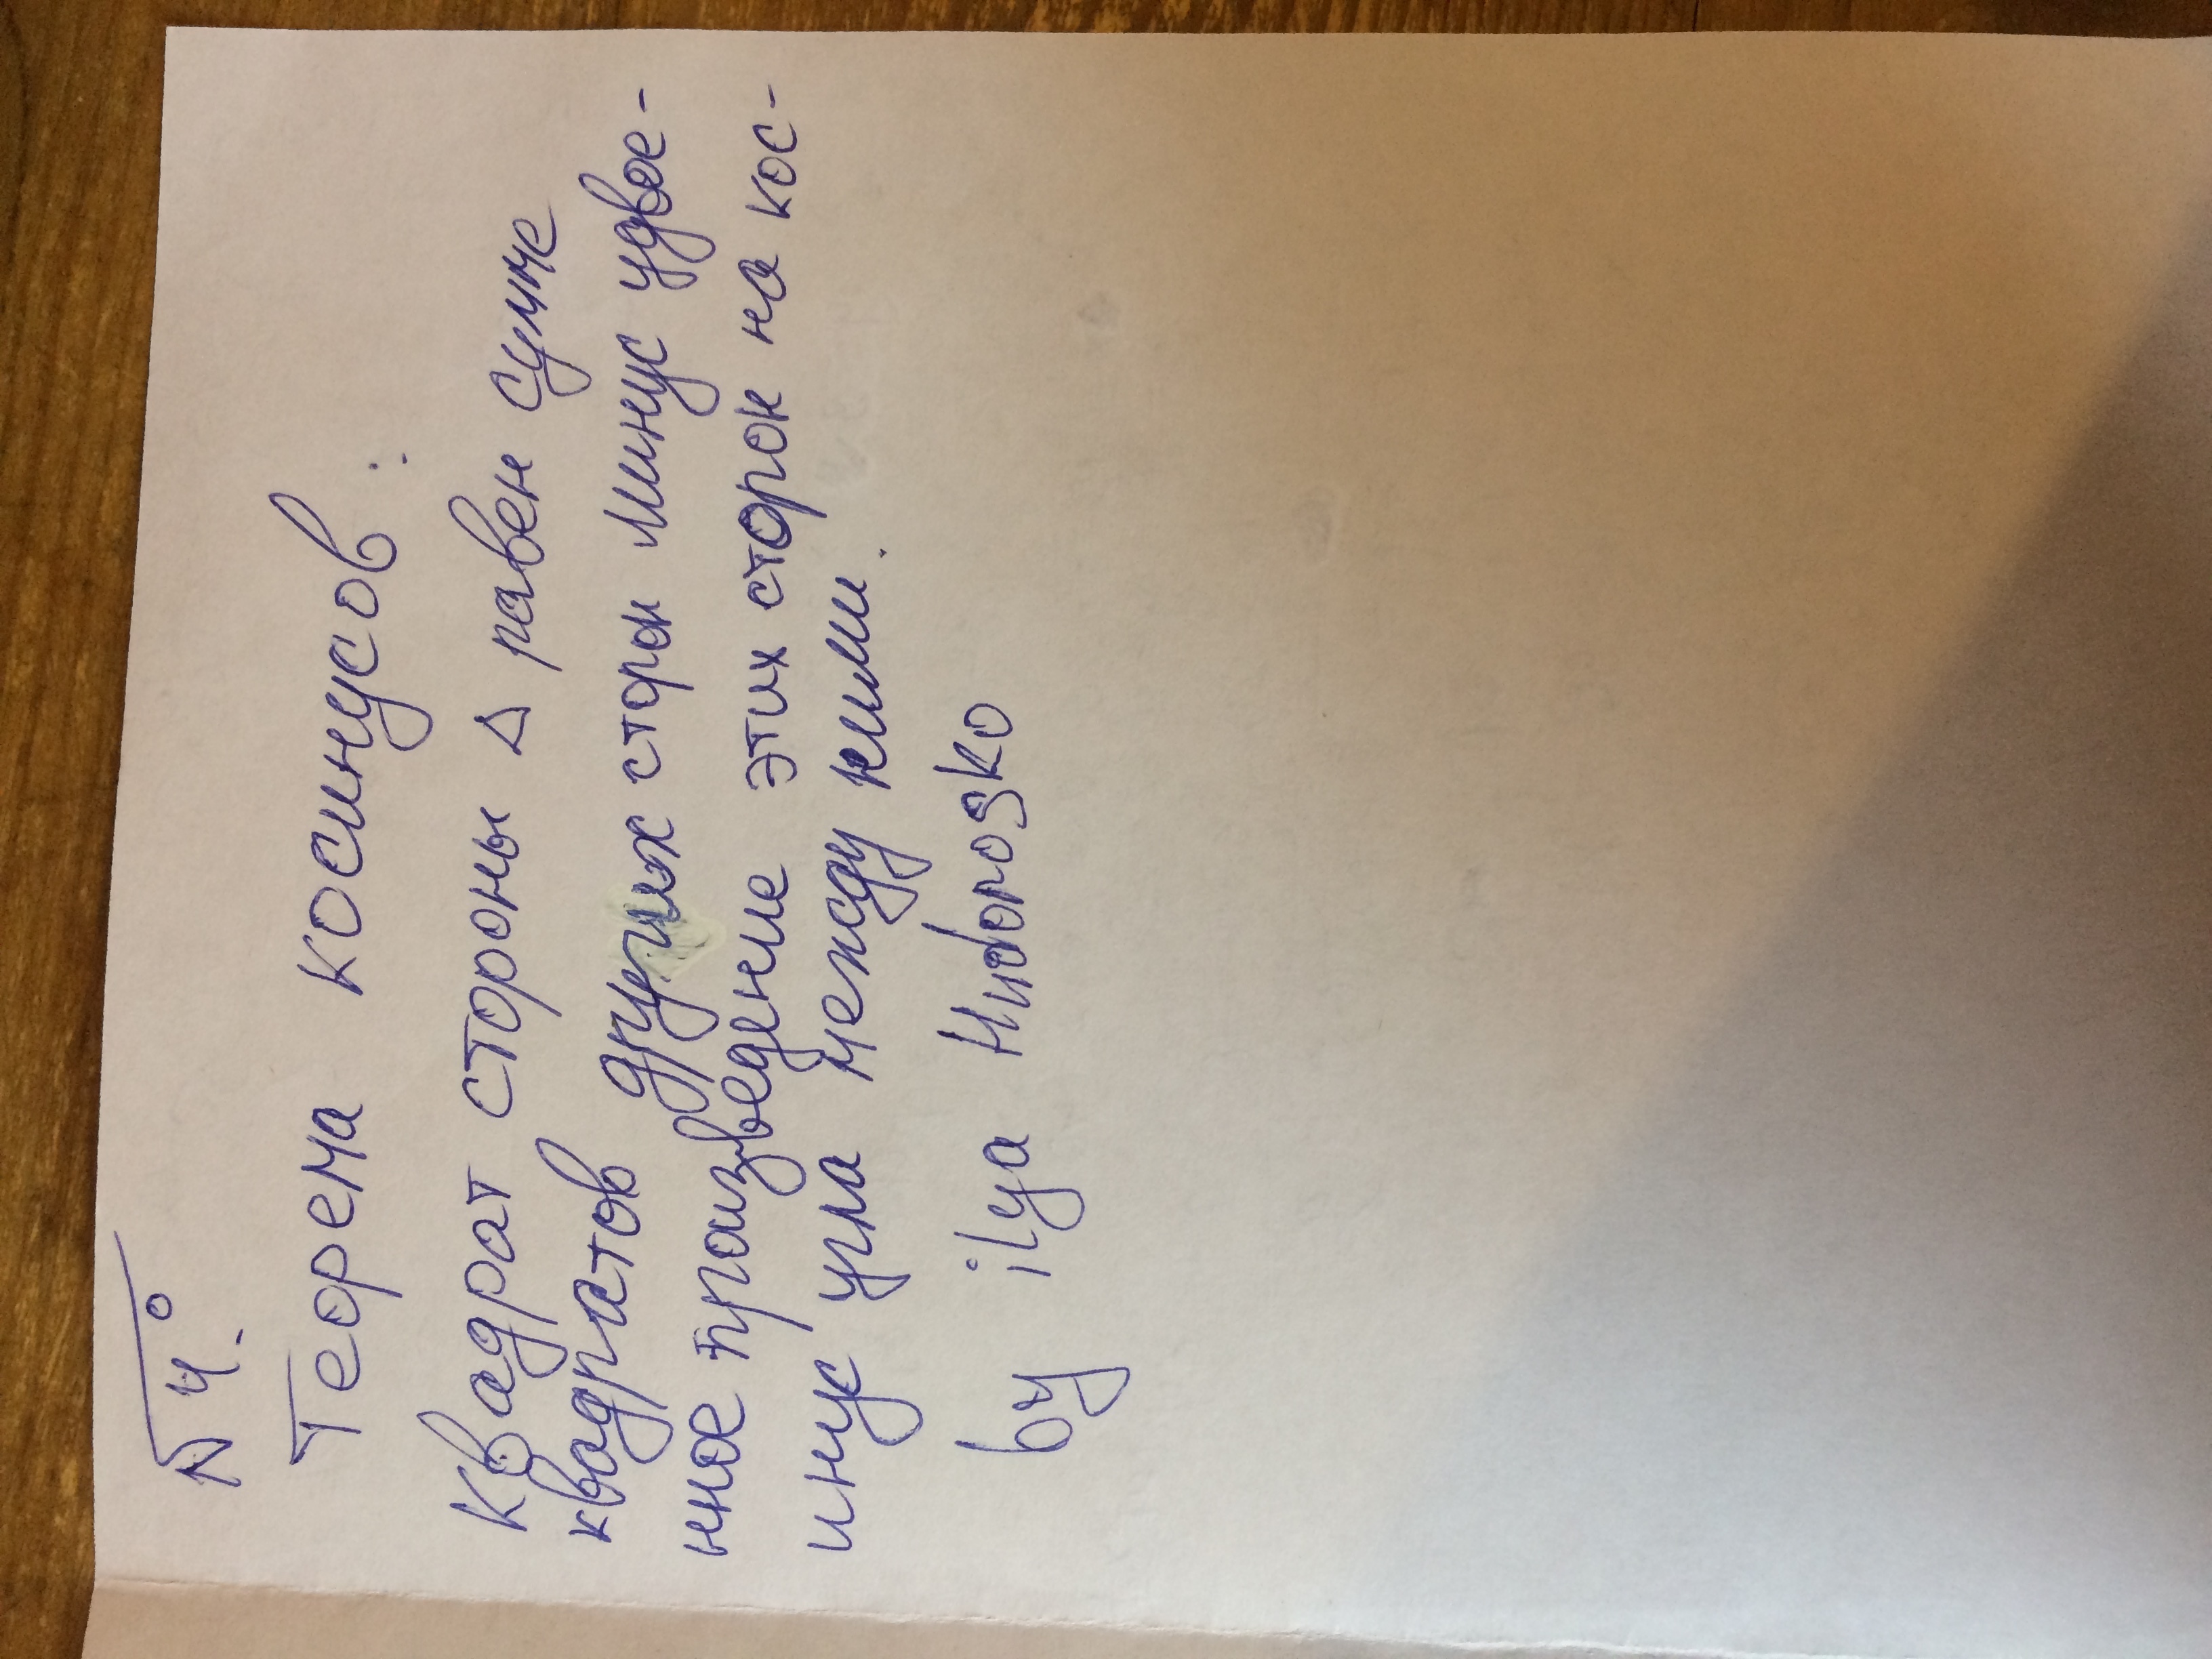 № 4.
Теорема косинусов:
Квадрат стороны Δ равен сумме
квадратов других сторон минус удвое-
нное произведение этих сторон на кос-
инус угла между ними.
by ilya Hudorosko